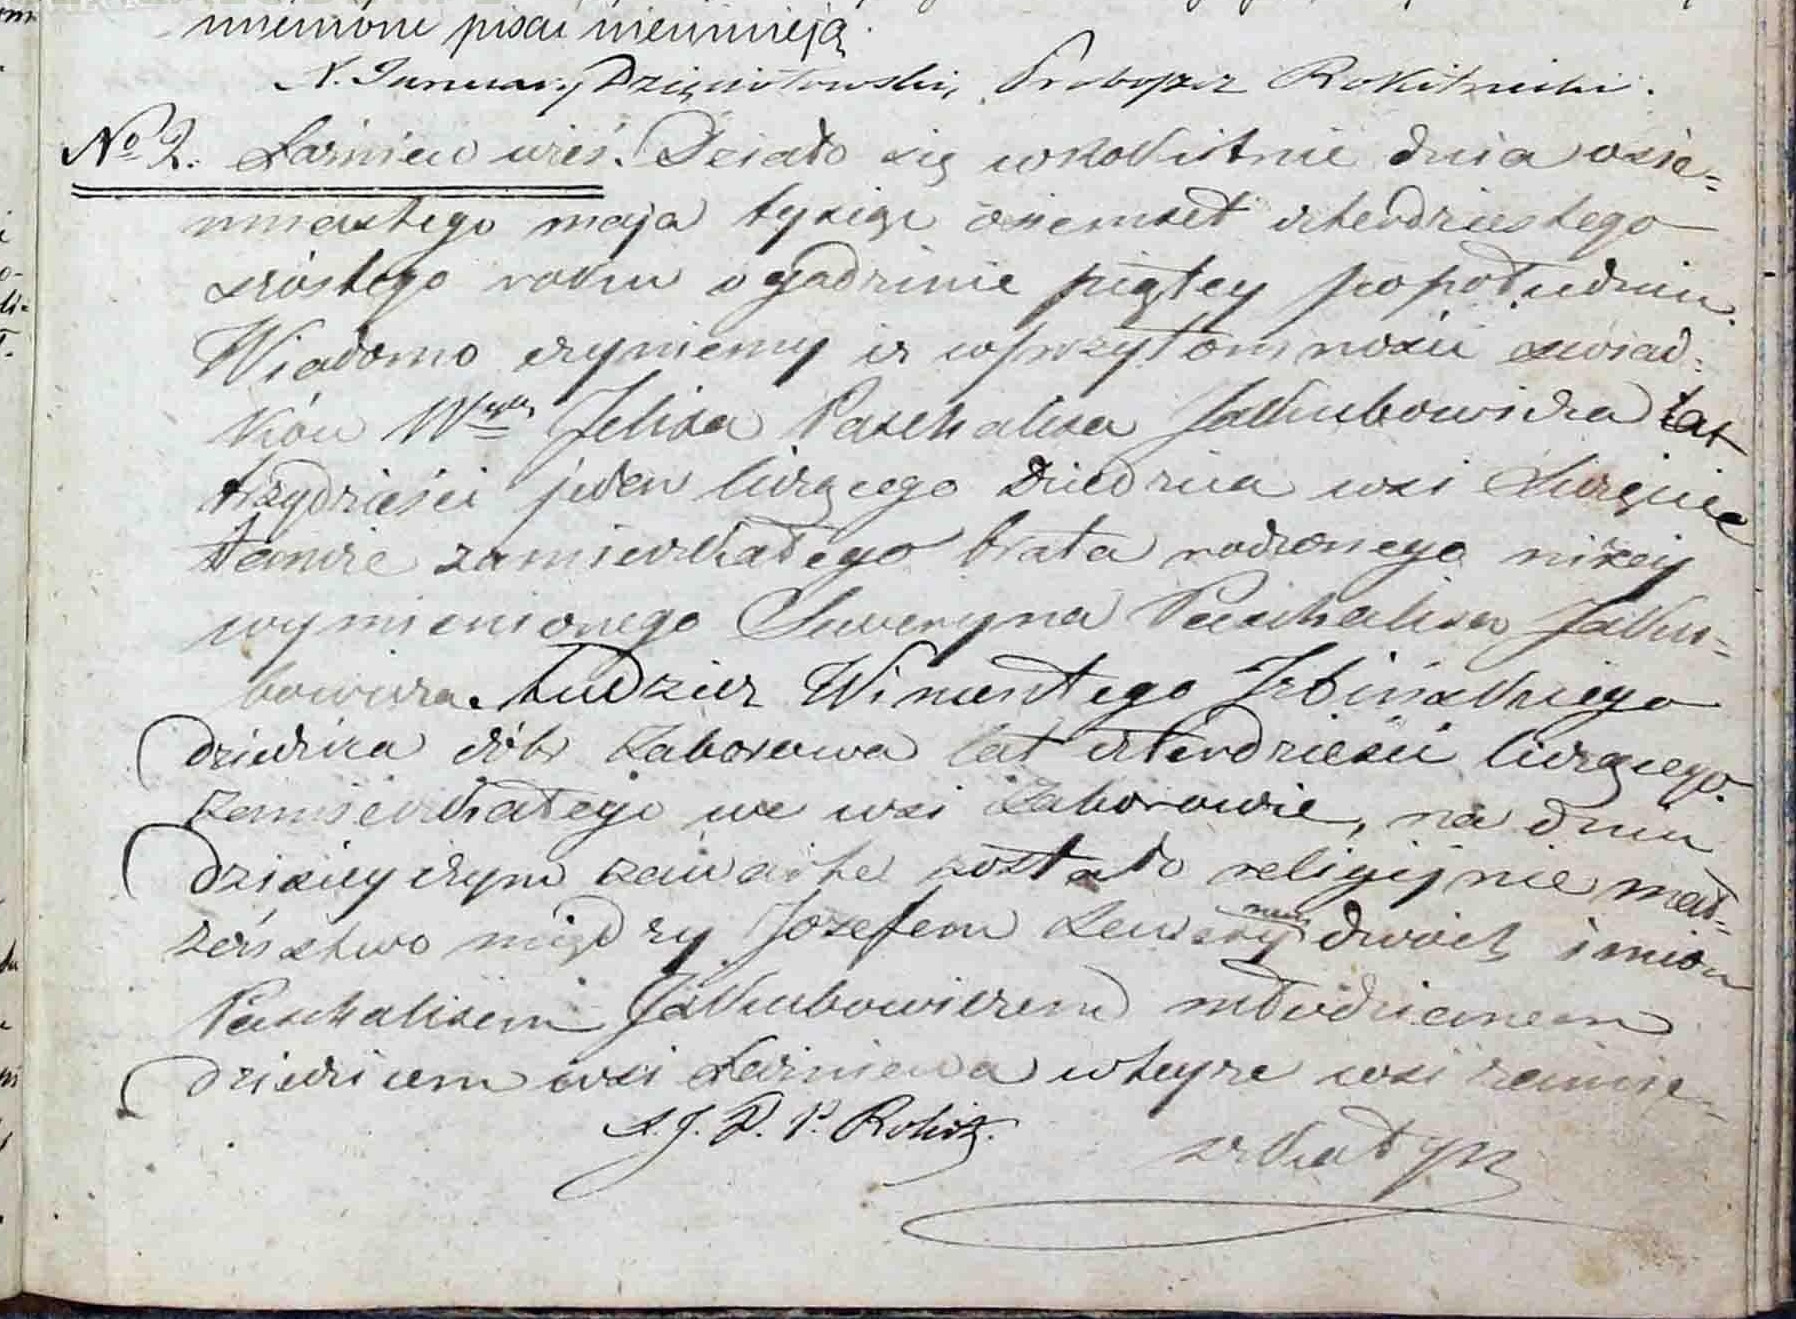 mienione pisać nieumieją.
X. January Dzięciołowski, Proboszcz Rokitnicki.
No 2. Łaźniew wieś. Działo się w Rokitnie dnia osie=
mnastego maja tysiąc ośiemset czterdziestego
szóstego roku o godzinie piątey po południu.
Wiadomo czyniemy iż w przytomności swiad=
ków Felixa Paschalisa Jakubowicza lat
trzydzieści jeden liczącego Dziedzica wsi
tamże zamieszkałego brata rodzonego niżey
wymienionego Seweryna Paschalisa Jaku=
bowicza. tudzież Wincentego
dziedzica dóbr Zaborowa lat czterdzieści liczącego.
zamieszkałego we wsi Zaborowie, na dniu
dzisieyszym zawarte zostało religijnie mał=
żeństwo między Józefem Sewerynem dwóch imion
Paschalisem Jakubowiczem młodzianem
dziedzicem wsi Łaźniewa w teyże wsi zamie=
szkałym
X. J. D. P. Rokit.